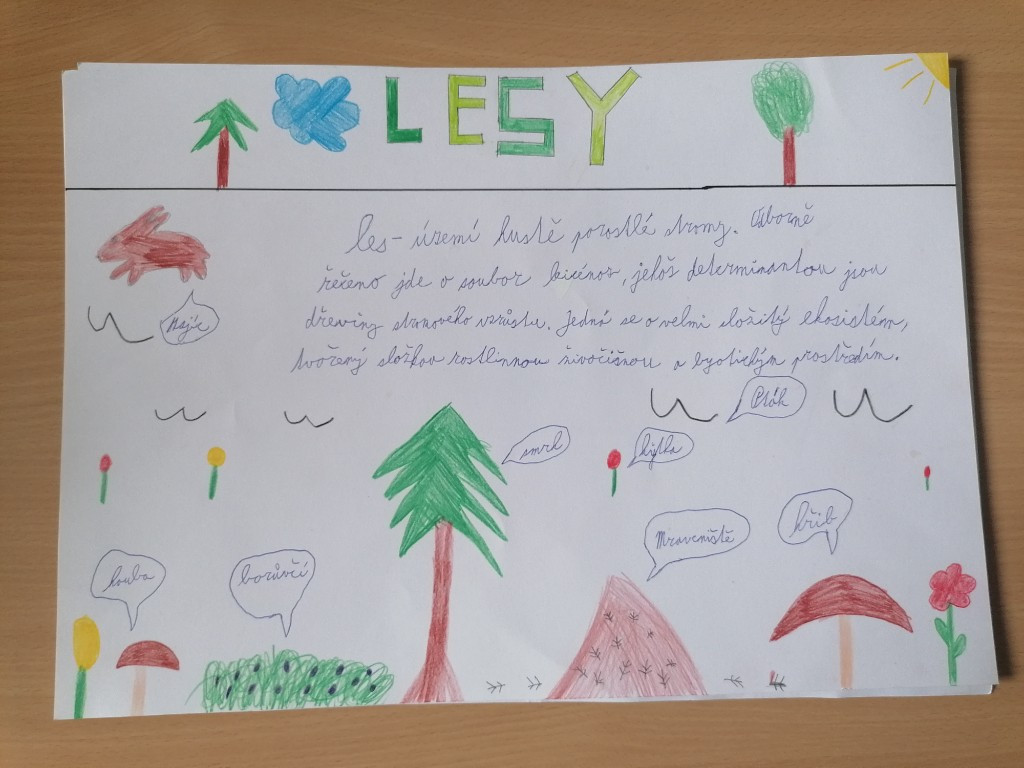 LESY
les - území hustě porostlé stromy. Odborně
řěčeno jde o soubor biocénos, jehož determinantou jsou
dřeviny stromového vzrůstu. Jedná se o velmi složitý ekosistém,
tvořený složkou rostlinnou živočišnou a byotickým prostředím.
Zajíc
Pták
smrk
kytka
Mraveniště
hřib
houba
borůvčí